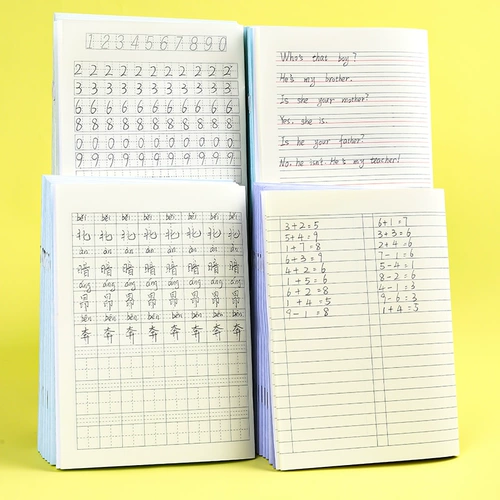 1 2 3 4 5 6 7 8 9 0
2 2 2 2 2 2 2 2 2 2
3 3 3 3 3 3 3 3 3 3
6 6 6 6 6 6 6 6 6 6
8 8 8 8 8 8 8 8 8 8
0 0 0 0 0 0 0 0 0 0
9 9 9 9 9 9 9 9 9 9
Who's that boy?
He's my brother.
Is she your mother?
Yes, she is.
Is he your father?
No, he isnt. He's my teacher!
běi běi běi běi běi běi běi běi
北 北 北 北 北 北 北 北
àn àn àn àn àn àn àn àn
暗 暗 暗 暗 暗 暗 暗 暗
áng áng áng áng áng áng áng áng
昂 昂 昂 昂 昂 昂 昂 昂
bēn bēn bēn bēn bēn bēn bēn bēn
奔 奔 奔 奔 奔 奔 奔 奔
3+2=5
5+4=9
1+7=8
6+3=9
4+2=6
1+5=6
6+2=8
1+4=5
9-1=8
6+1=7
3+3=6
2+4=6
7-1=6
5-4=1
8-2=6
4-1=3
9-6=3
1+4=5